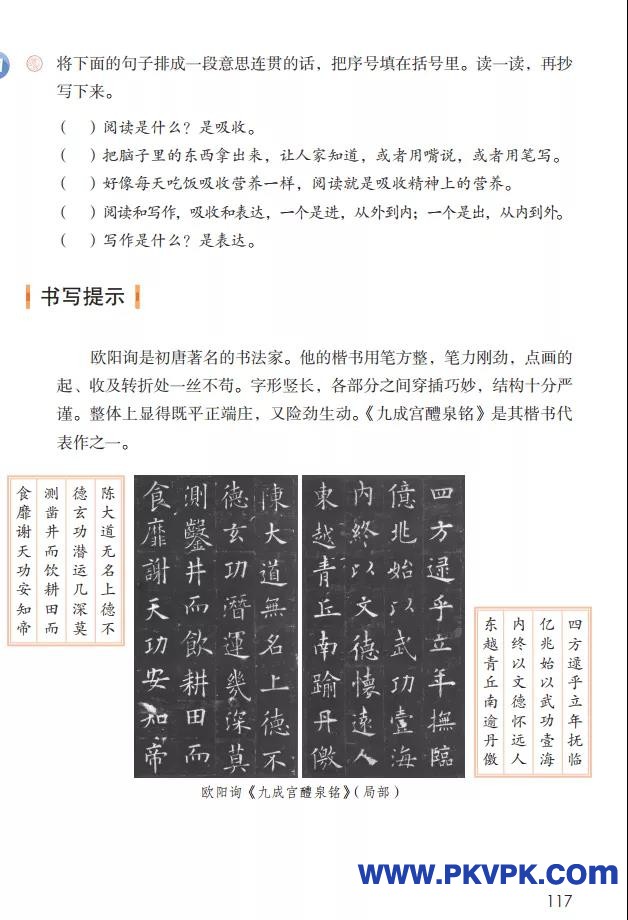 将下面的句子排成一段意思连贯的话，把序号填在括号里。读一读，再抄
写下来。
（　）阅读是什么？是吸收。
（　）把脑子里的东西拿出来，让人家知道，或者用嘴说，或者用笔写。
（　）好像每天吃饭吸收营养一样，阅读就是吸收精神上的营养。
（　）阅读和写作，吸收和表达，一个是进，从外到内；一个是出，从内到外。
（　）写作是什么？是表达。
书写提示
欧阳询是初唐著名的书法家。他的楷书用笔方整，笔力刚劲，点画的
起、收及转折处一丝不苟。字形竖长，各部分之间穿插巧妙，结构十分严
谨。整体上显得既平正端庄，又险劲生动。《九成宫醴泉铭》是其楷书代
表作之一。
四方逯乎立年抚临
亿兆始以武功壹海
内终以文德怀远人
东越青丘南逾丹徼
四方逯乎立年撫臨
億兆始以武功壹海
内終以文德懷遠人
東越青丘南踰丹徼
陳大道無名上德不
德玄功潛運幾深莫
測鑿井而飲耕田而
食靡謝天功安知帝
陈大道无名上德不
德玄功潜运几深莫
测凿井而饮耕田而
食靡谢天功安知帝
欧阳询《九成宫醴泉铭》（局部）
www.PKVPK.com
117